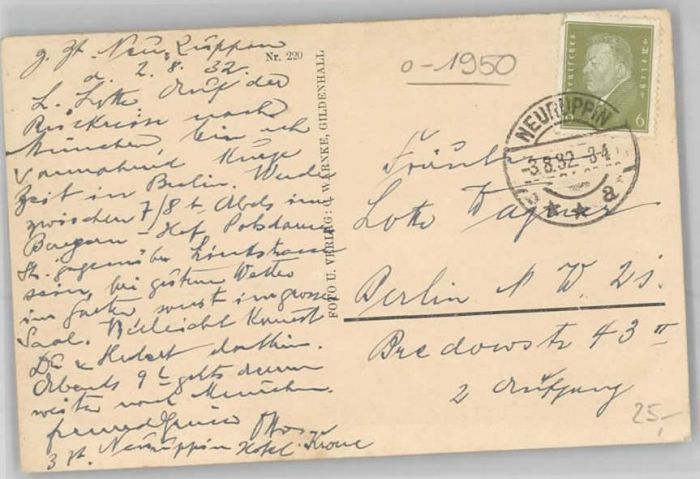 z. Zt. Neu-Ruppin
d. 2.8.32.
L. Lotte Auf der
Rückreise nach
München bin ich
Vormittag kurze
Zeit in Berlin. Werde
zwischen 7/8 t Abds im
Bayern-Hof, Potsdamer
St. gegenüber Linkstrasse
sein, bei gutem Wetter
im Garten sonst im grossen
Saal. Vielleicht kommst
Du u Herbert dorthin.
Abends 9 gehts dann
weiter nach München.
z. Zt. Neuruppin Hotel Krone
Nr. 220
FOTO U. VERLAG: WARNKE, GILDENHALL
0-1950
DEUTSCHES REICH
6
NEURUPPIN
3.8.32.
a
Fräulein
Lotte Wagner
Berlin N W 21.
Bredowstr 43 II
2 Aufgang
25,-